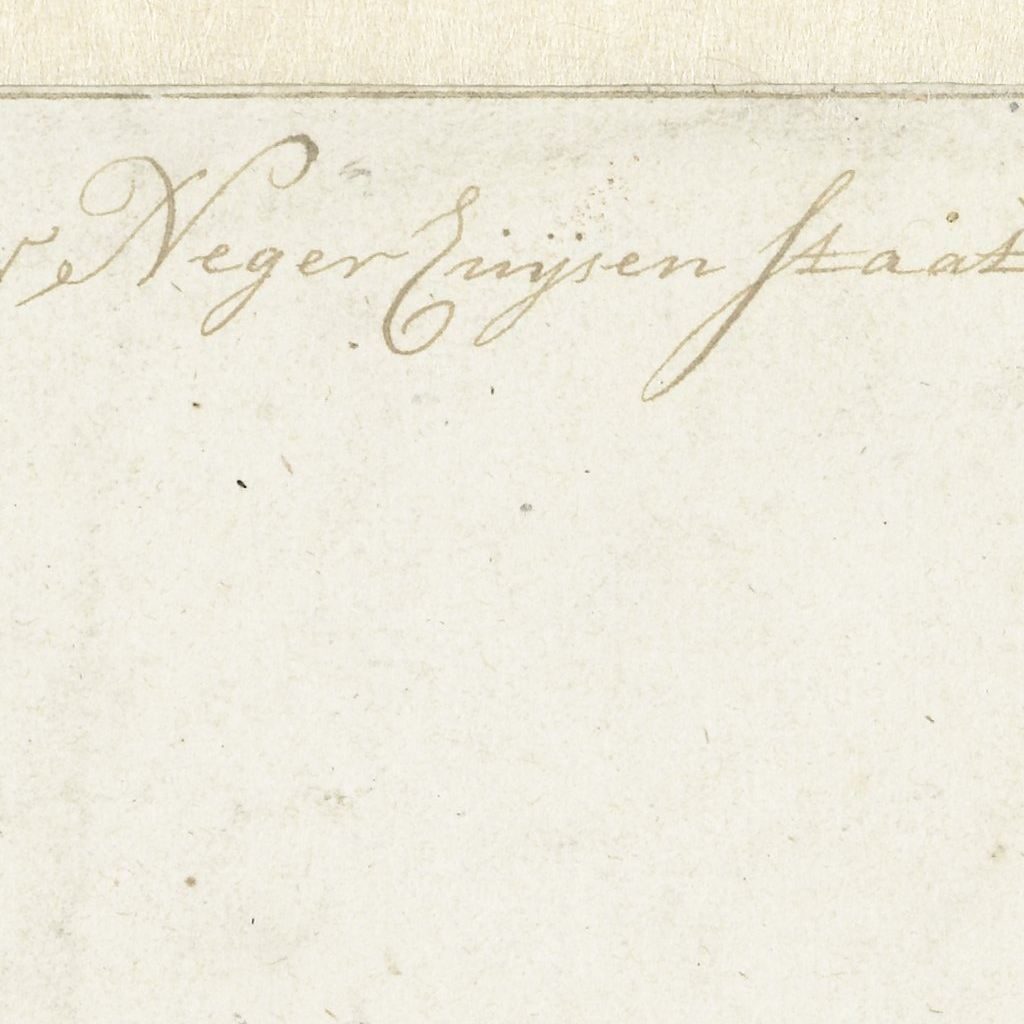 r Neger Huijsen staat